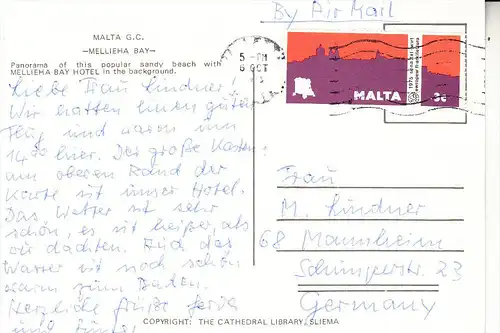 MALTA G.C.
—MELLIEHA BAY—
Panorama of this popular sandy beach with
MELLIEHA BAY HOTEL in the background.
By Air Mail
5 - PM
6 OCT
MALTA
3c
Liebe Frau Lindner!
Wir hatten einen guten
Flug und waren um
14⁰⁰ hier. Der große Kasten
am oberen Rand der
Karte ist unser Hotel.
Das Wetter ist sehr
schön, es ist heißer, als
wir dachten. Auch das
Wasser ist noch schön
warm zum Baden.
Herzliche Grüße
und
Frau
M. Lindner
68 Mannheim
Schimperstr. 23
Germany
COPYRIGHT: THE CATHEDRAL LIBRARY, SLIEMA